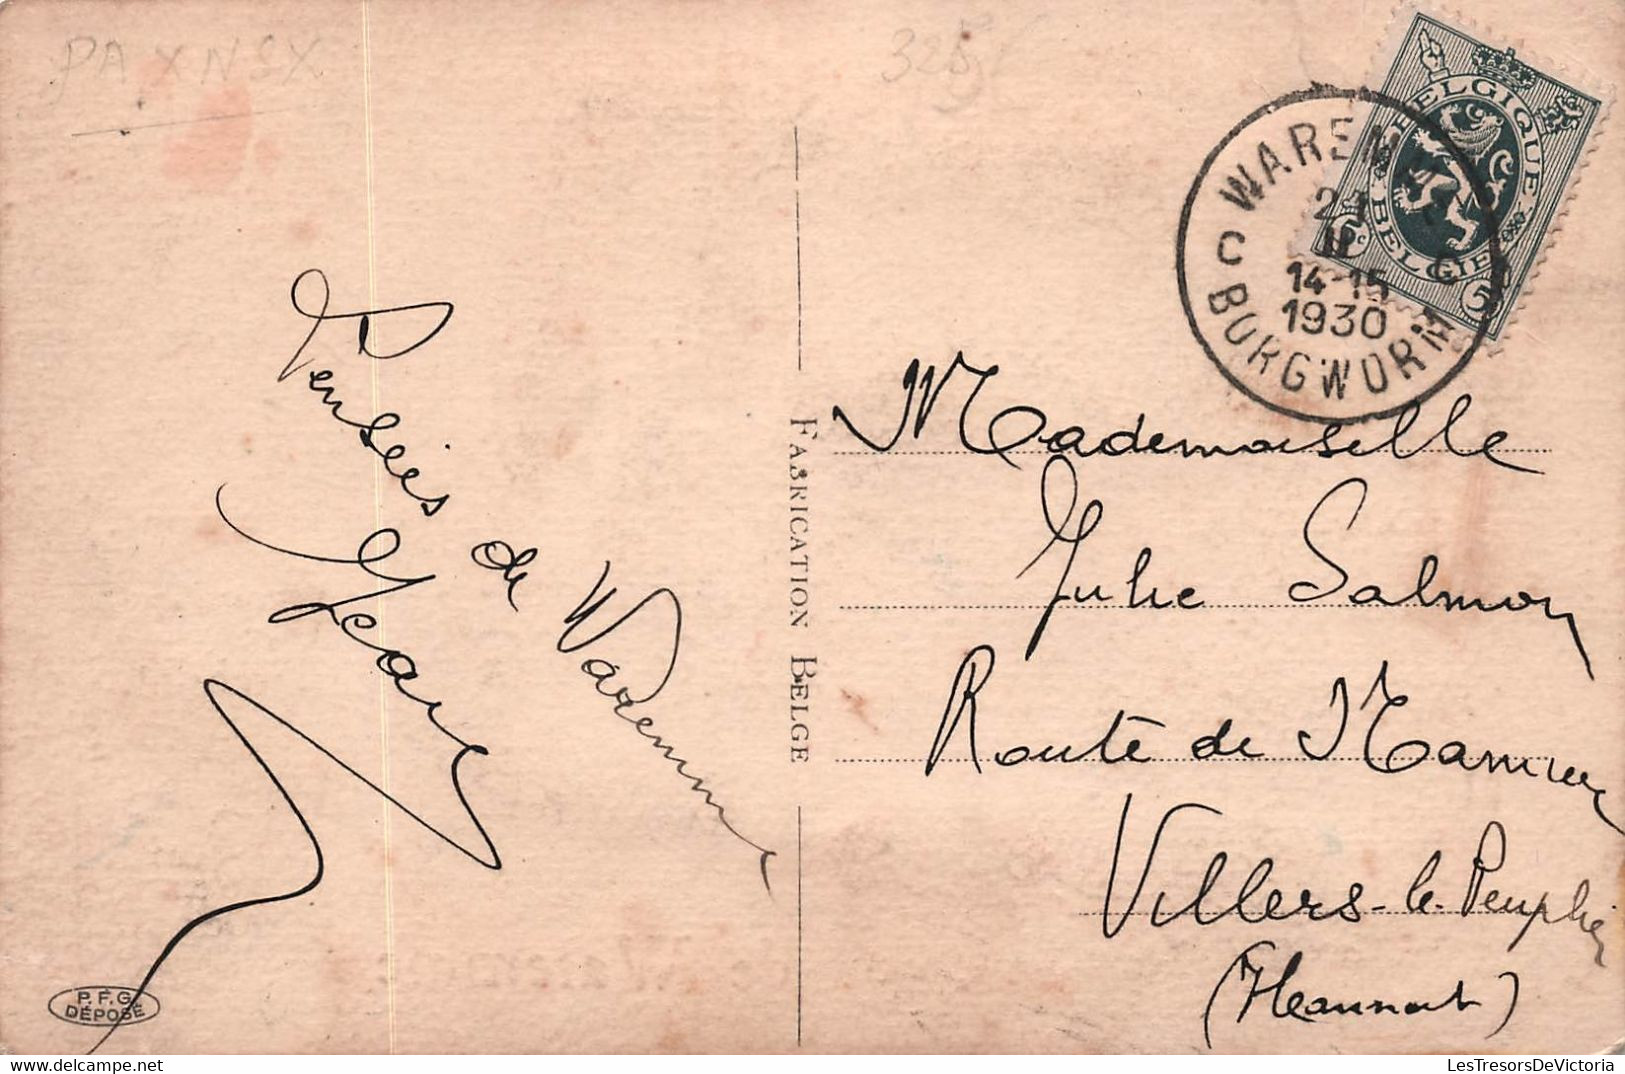 PAXNSX
325
BELGIQUE
BELGIE
5c
5
WAREM
21
II
14-15
1930
C
C
BORGWORM
Pensées de Waremme
Jean
FABRICATION BELGE
Mademoiselle
Julie Salmon
Route de Namur
Villers-le-Peuplier
(Hannut)
P.F.G.
DÉPOSÉ
LesTresorsDeVictoria